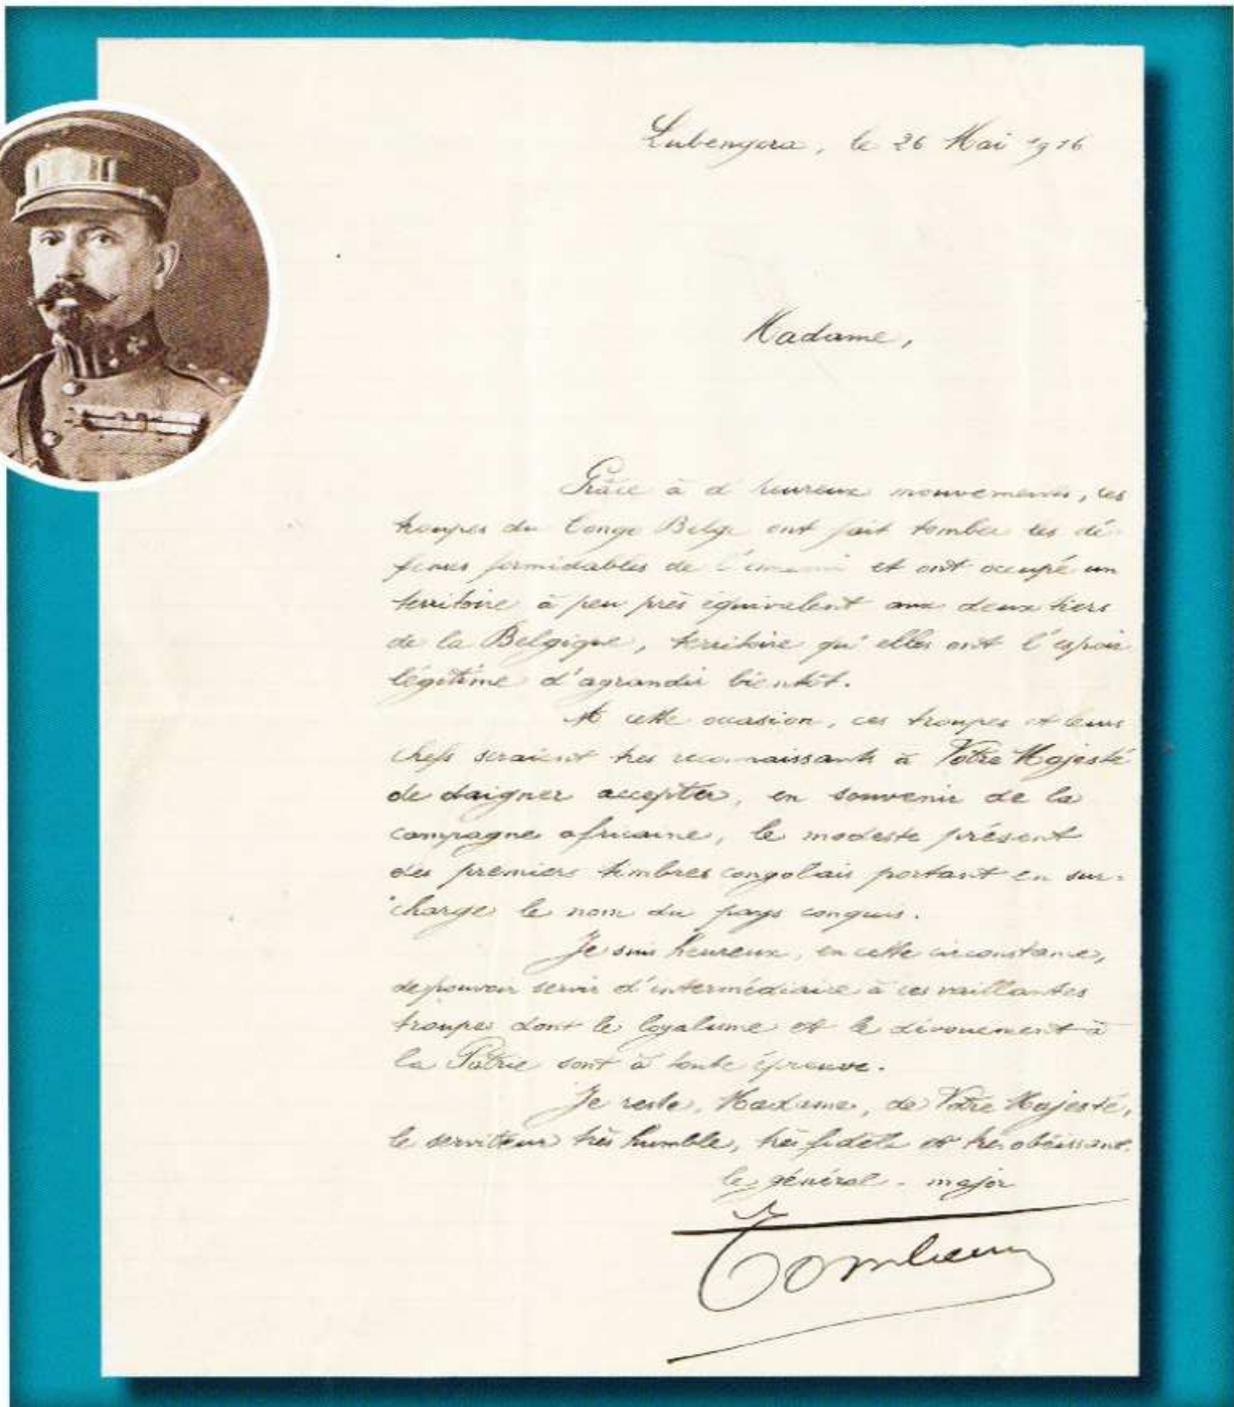 Lubengera, le 26 Mai 1916
Madame,
Grâce à d'heureux mouvements, les
troupes du Congo Belge ont fait tomber les dé-
fenses formidables de l'ennemi et ont occupé un
territoire à peu près équivalent aux deux tiers
de la Belgique, territoire qu'elles ont l'espoir
légitime d'agrandir bientôt.
A cette occasion, ces troupes et leurs
chefs seraient très reconnaissants à Votre Majesté
de daigner accepter, en souvenir de la
campagne africaine, le modeste présent
des premiers timbres congolais portant en sur-
charge le nom du pays conquis.
Je suis heureux, en cette circonstance,
de pouvoir servir d'intermédiaire à ces vaillantes
troupes dont le loyalisme et le dévouement à
la Patrie sont à toute épreuve.
Je reste, Madame, de Votre Majesté,
le serviteur très humble, très fidèle et très obéissant.
le général-major
Tombeur